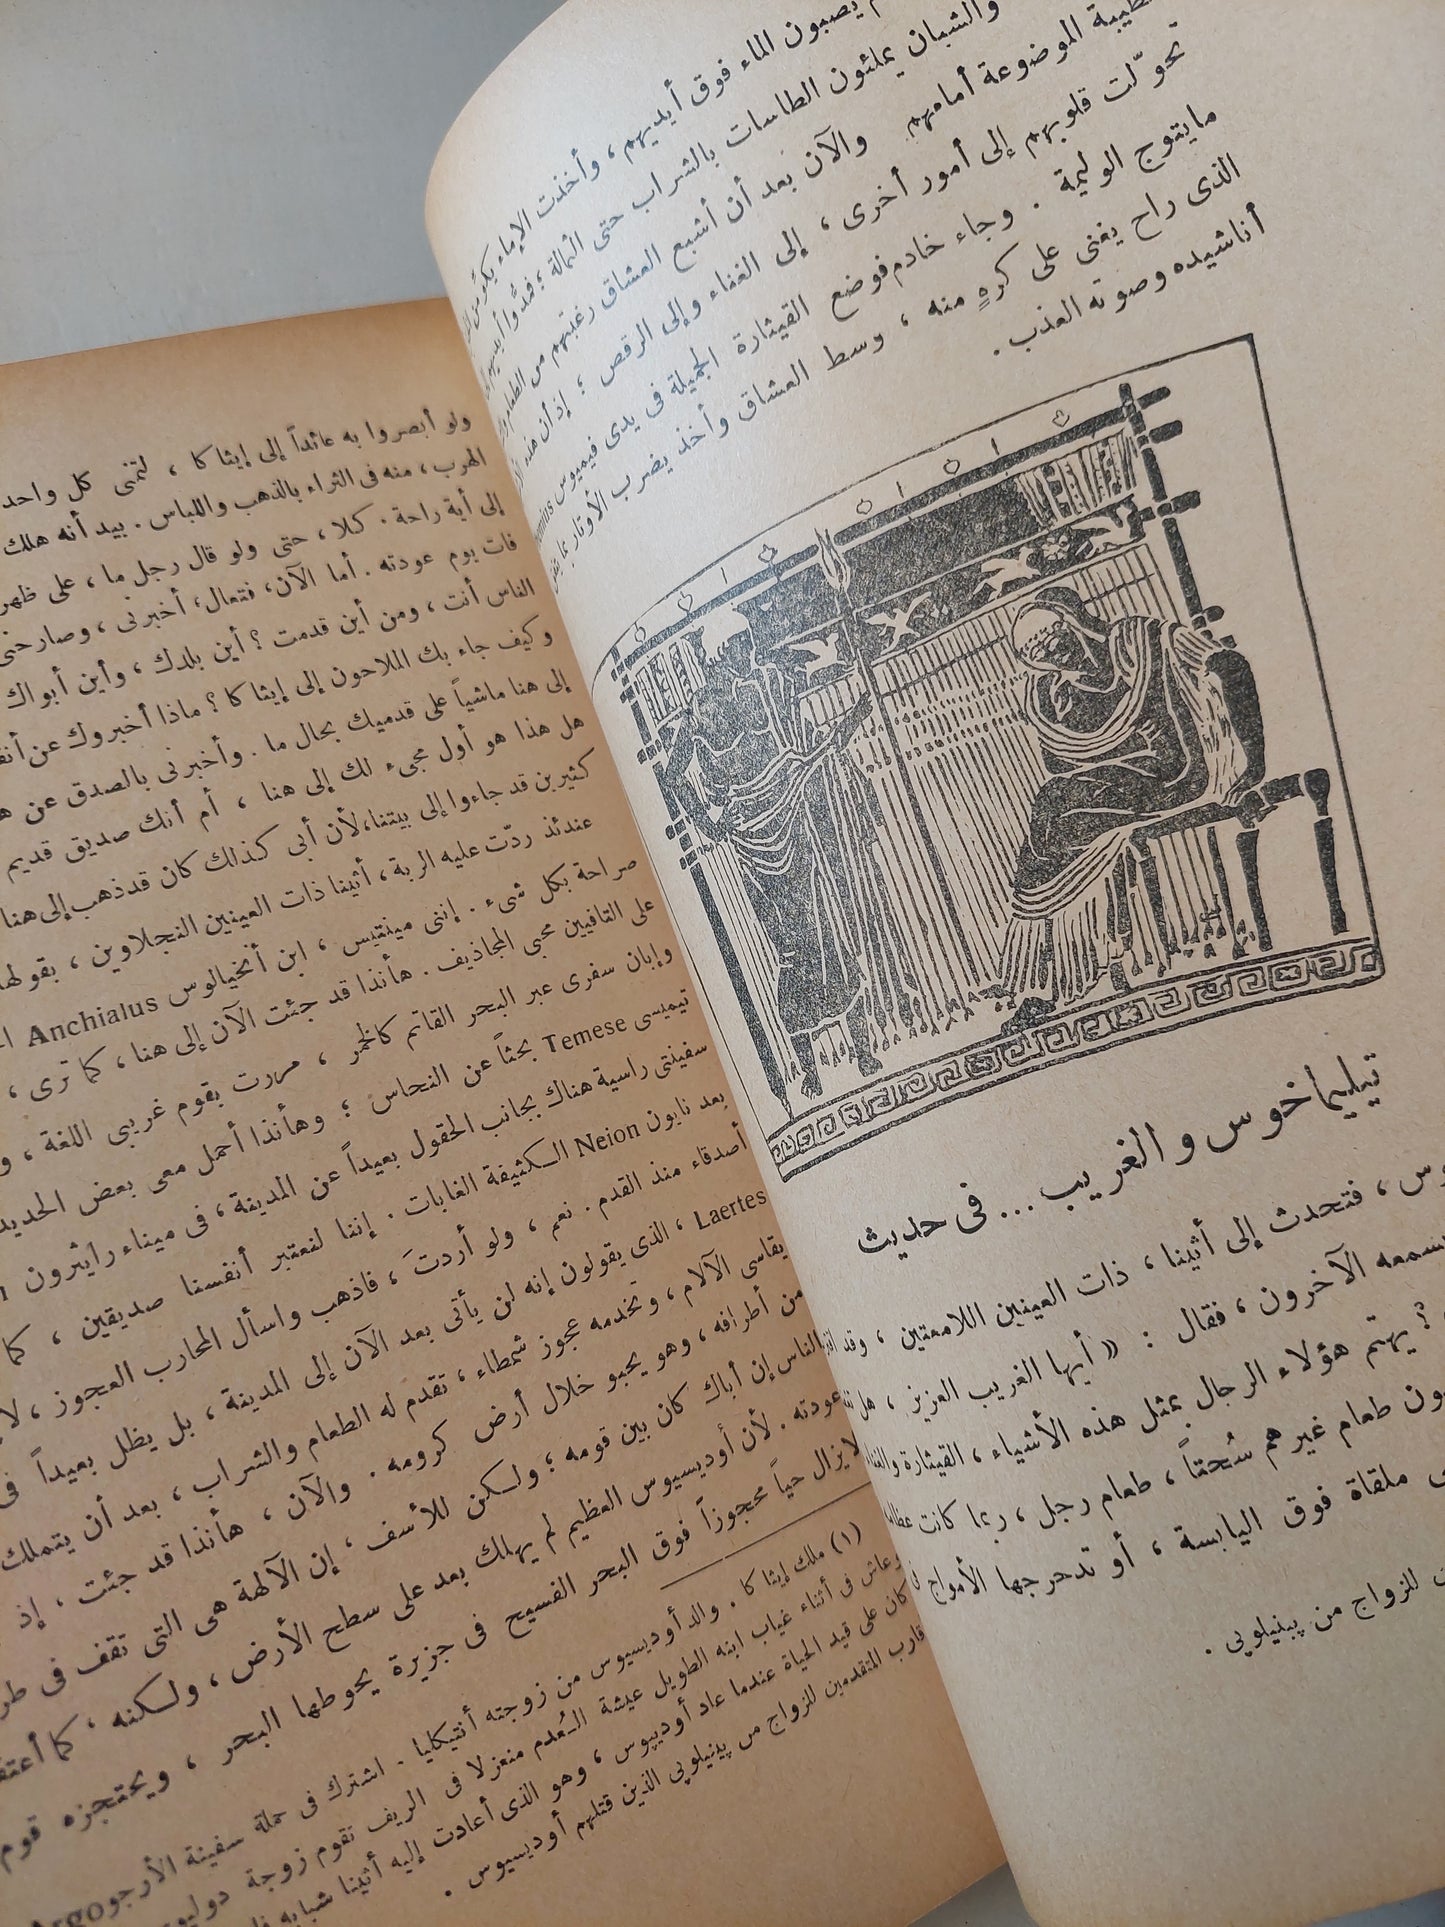 يصبون الماء فوق أيديهم ، وأخذت الإماء يكدّسن
والشبان يملئون الطاسات بالشراب حتى الثمالة ؛ فمدُّوا أيديهم
الطيبة الموضوعة أمامهم والآن بعد أن أشبع العشاق رغبتهم من الطعام
تحوّلت قلوبهم إلى أمور أخرى ، إلى الغناء وإلى الرقص ؛ إذ أن هذه
مايتوج الوليمة . وجاء خادم فوضع القيثارة الجميلة فى يدى فيميوس
الذى راح يغنى على كرهٍ منه ، وسط العشاق وأخذ يضرب الأوتار بما
أناشيده وصوته العذب .
تيليماخوس والغريب ... فى حديث
فتحدث إلى أثينا ، ذات العينين اللامعتين ، وقد
يسمعه الآخرون ، فقال : « أيها الغريب العزيز ، هل
؟ يهتم هؤلاء الرجال بمثل هذه الأشياء ، القيثارة والغناء
طعام غيرهم سُحتاً ، طعام رجل ، ربما كانت
ملقاة فوق اليابسة ، أو تدحرجها الأمواج
للزواج من پينيلوپى .
ولو أبصروا به عائداً إلى إيثاكا ، لتمنى كل واحد
الهرب ، منه فى الثراء بالذهب واللباس . بيد أنه هلك
إلى أية راحة . كلا ، حتى ولو قال رجل ما ، على ظهر
فات يوم عودته . أما الآن ، فتعال ، أخبرنى ، وصارحنى
الناس أنت ، ومن أين قدمت ؟ أين بلدك ، وأين أبواك
وكيف جاء بك الملاحون إلى إيثاكا ؟ ماذا أخبروك عن
إلى هنا ماشياً على قدميك بحال ما . وأخبرنى بالصدق عن
هل هذا هو أول مجىء لك إلى هنا ، أم أنك صديق قديم
كثيرين قد جاءوا إلى بيتنا، لأن أبى كذلك كان قد ذهب إلى هنا
عندئذ ردّت عليه الربة ، أثينا ذات العينين النجلاوين ، بقولها
صراحة بكل شىء . إننى مينتيس ، ابن أنخيالوس Anchialus
على التافيين محبى المجاذيف . هأنذا قد جئت الآن إلى هنا ، كما ترى ،
وإبان سفرى عبر البحر القاتم كالخمر ، مررت بقوم غريبى اللغة ،
تيميسى Temese بحثاً عن النحاس ؛ وهأنذا أحمل معى بعض الحديد
سفينتى راسية هناك بجانب الحقول بعيداً عن المدينة ، فى ميناء رايثرون
بعد نايون Neion الكثيفة الغابات . إننا لنعتبر أنفسنا صديقين ، كما
أصدقاء منذ القدم . نعم ، ولو أردتَ ، فاذهب واسأل المحارب العجوز ،
Laertes ، الذى يقولون إنه لن يأتى بعد الآن إلى المدينة ، بل يظل بعيداً فى
يقاسى الآلام ، وتخدمه عجوز شمطاء ، تقدم له الطعام والشراب ، بعد أن يتملك
من أطرافه ، وهو يحبو خلال أرض كرومه . والآن ، هأنذا قد جئت ، إذ
الناس إن أباك كان بين قومه ؛ ولكن للأسف ، إن الآلهة هى التى تقف فى
عودته . لأن أوديسيوس العظيم لم يهلك بعد على سطح الأرض ، ولكنه ، كما
لايزال حياً محجوزاً فوق البحر الفسيح فى جزيرة يحوطها البحر ، ويحتجزه قوم
(١) ملك إيثاكا . والد أوديسيوس من زوجته أنتيكليا . اشترك فى حملة سفينة الأرجو Argo
وعاش فى أثناء غياب ابنه الطويل عيشة العُدم منعزلا فى الريف تقوم زوجة
كان على قيد الحياة عندما عاد أوديپوس ، وهو الذى أعادت إليه أثينا شبابه
أقارب المتقدمين للزواج من پينيلوپى الذين قتلهم أوديسيوس .